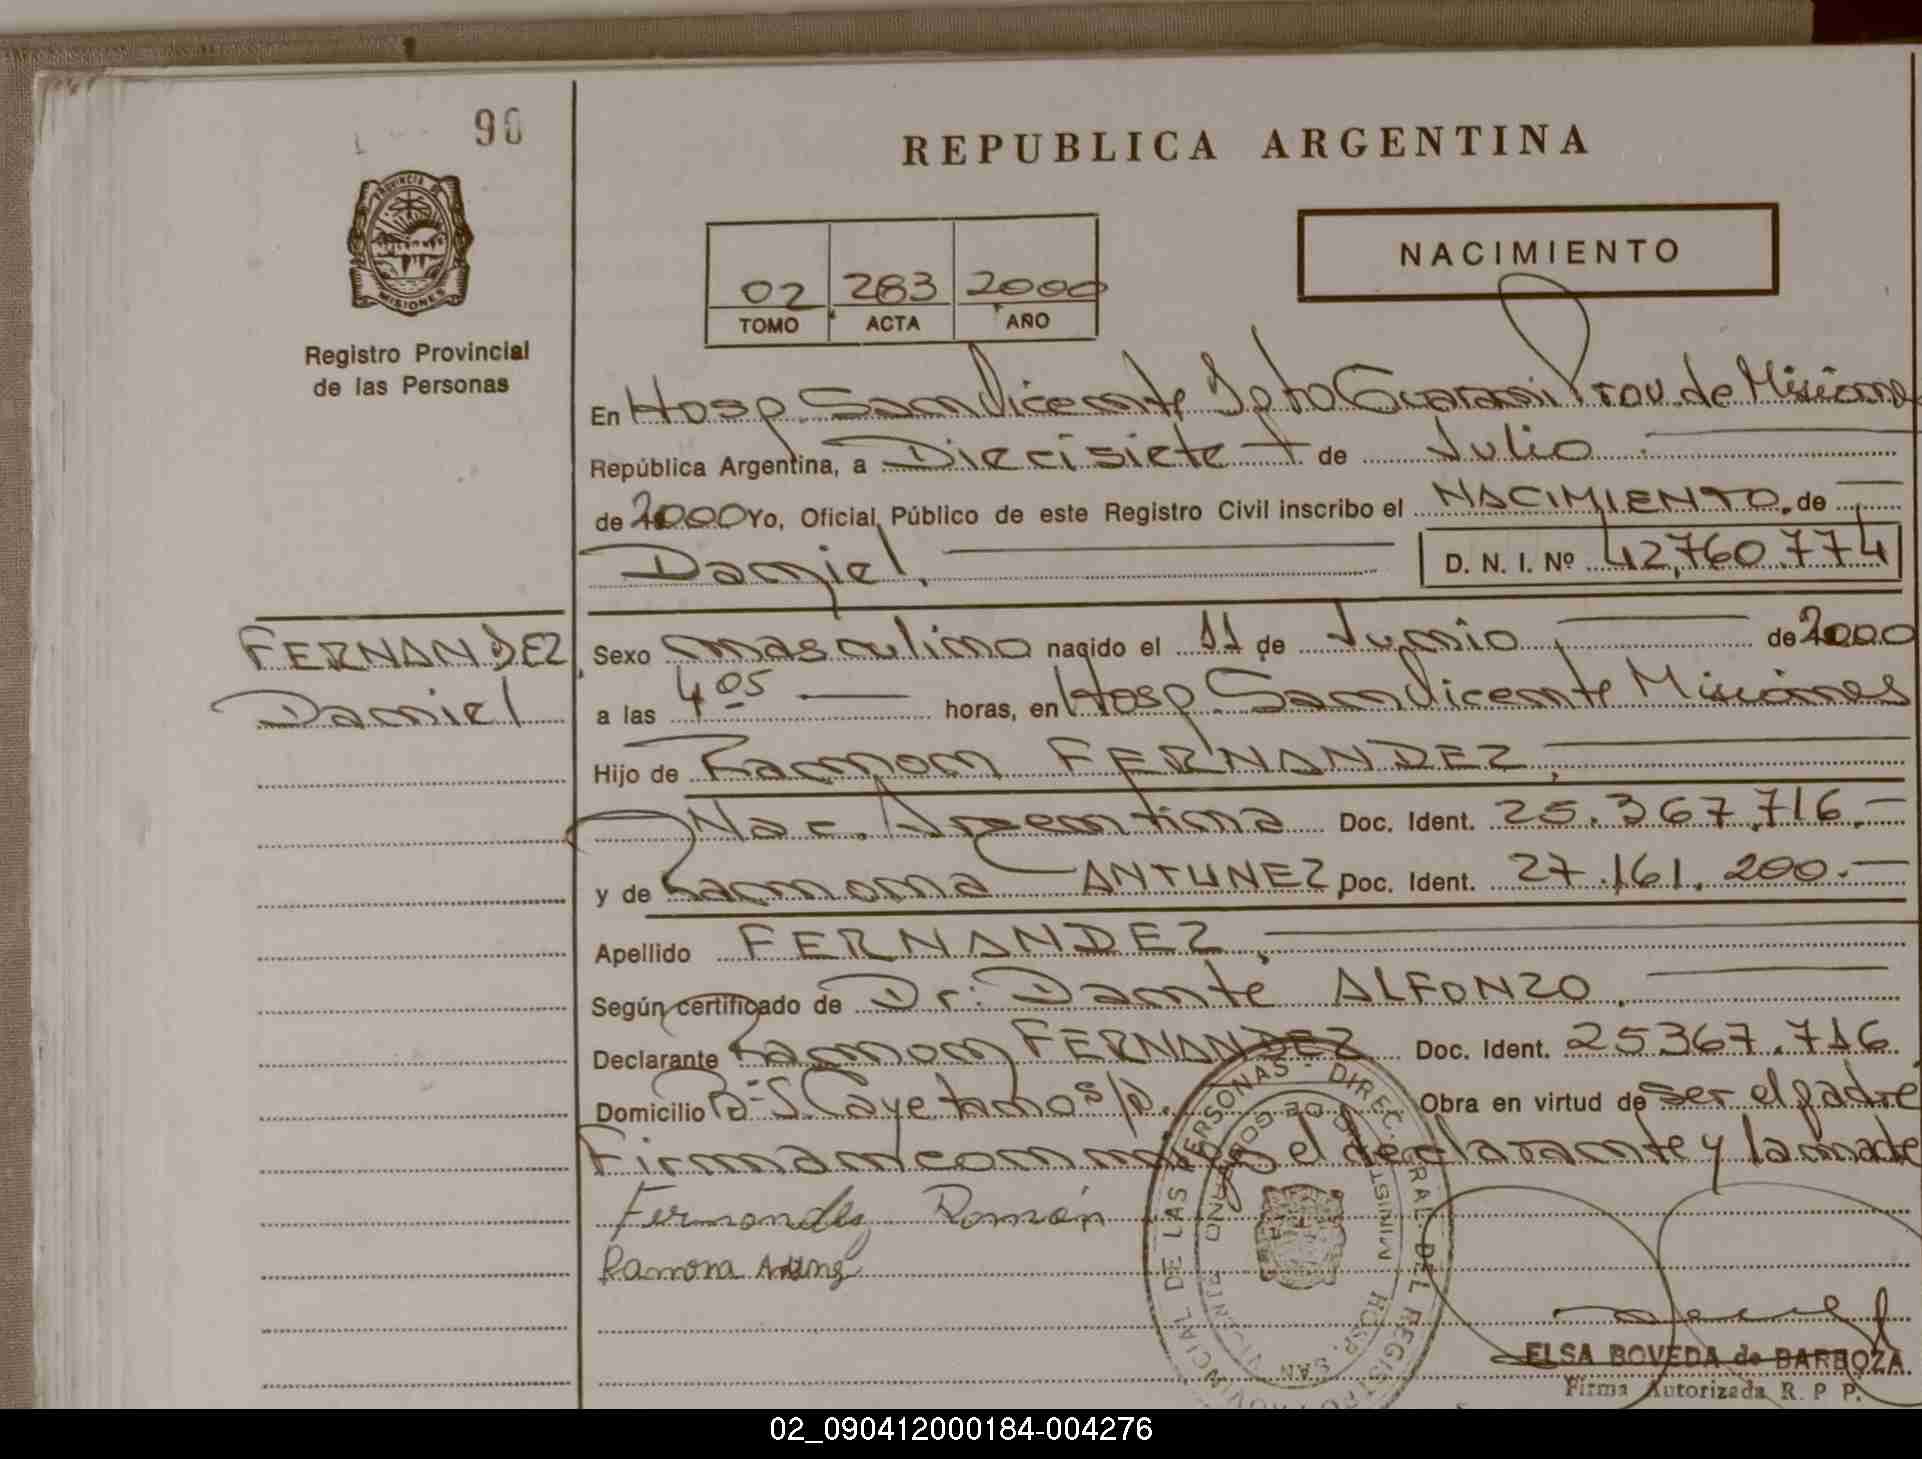 90
PROVINCIA DE
MISIONES
Registro Provincial
de las Personas
REPUBLICA ARGENTINA
NACIMIENTO
02 283 2000
TOMO ACTA AÑO
En Hosp. San Vicente Dpto Guarani Prov. de Misiones
República Argentina, a Diecisiete de Julio
de 2000 Yo, Oficial Público de este Registro Civil inscribo el NACIMIENTO. de
Daniel. D. N. I. Nº 42.760.774
FERNANDEZ
Daniel
Sexo masculino nacido el 11 de Junio de 2000
a las 4 05 horas, en Hosp. San Vicente Misiones
Hijo de Ramon FERNANDEZ,
Nac. Argentina Doc. Ident. 25.367.716.-
y de Ramona ANTUNEZ Doc. Ident. 27.161.200.-
Apellido FERNANDEZ,
Según certificado de Dr: Dante ALFONZO.
Declarante Ramon FERNANDEZ Doc. Ident. 25367.716
Domicilio Bº S. Cayetano s/n. Obra en virtud de ser el padre
Firman conmigo el declarante y la madre
Fernandez Ramón
Ramona
PROVINCIAL DE LAS PERSONAS - DIREC. GRAL. DEL REGISTRO
MINIST. DE GOBIERNO
HOSP. SAN VICENTE
ELSA BOVEDA de BARBOZA
Firma Autorizada R. P. P.
02_090412000184-004276